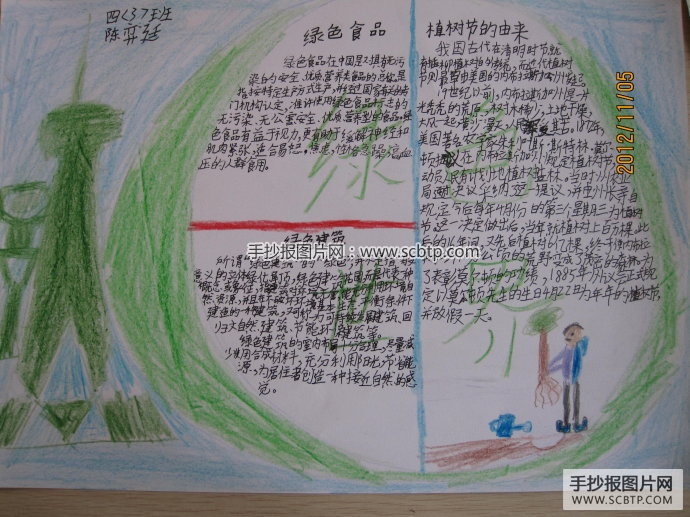 四<3>班
陈弈廷
绿色食品
绿色食品在中国是对具有无污
染的安全、优质、营养类食品的总称。是
指按特定生产方式生产,并经国家有关的专
门机构认定,准许使用绿色食品标志的
无污染、无公害、安全、优质、营养型的食品。绿
色食品有益于视力,更有助于缓解神经和
肌肉紧张,适合易怒、焦虑、性格急躁、高血
压的人群食用。
绿色建筑
所谓"绿色建筑"的"绿色",并不是
意义的立体绿化、屋顶
然资源,并且在不破坏环境
建造的一种建筑,又可称为可持续发展建筑、
归大自然建筑、节能环保建筑等。
绿色建筑的室内布局十分合理,尽量减
少使用合成材料,充分利用阳光,节省能
源,为居住者创造一种接近自然的感
觉。
植树节的由来
我国古代在清明时节就
有插柳植树的传统,而近代植树
节则最早由美国的内布拉斯加州发起。
19世纪以前,内布拉斯加州是一片
光秃秃的荒原,树木稀少,土地干燥,
大风一起,黄沙满天,人民深受其苦。1872年,
美国著名农学家朱利叶斯·斯特林·
莫尔顿提议在内布拉斯加州规定植树节,
动员人民有计划地植树造林。当时州农业
局通过决议采纳这一提议,并由州长亲自
规定今后每年4月份的第三个星期三为植树
节。这一决定做出后,当年就植树上百万棵。此
后的16年间,又先后植树6亿棵,终于使内布拉
公顷的荒野变成了茂密的森林。为
了表彰莫尔顿的功绩,1885年州议会正式规
定以莫尔顿先生的生日4月22日为每年的植树节,
并放假一天。
绿色世界
2012/11/05
手抄报图片网
www.scbtp.com
手抄报图片网
WWW.SCBTP.COM